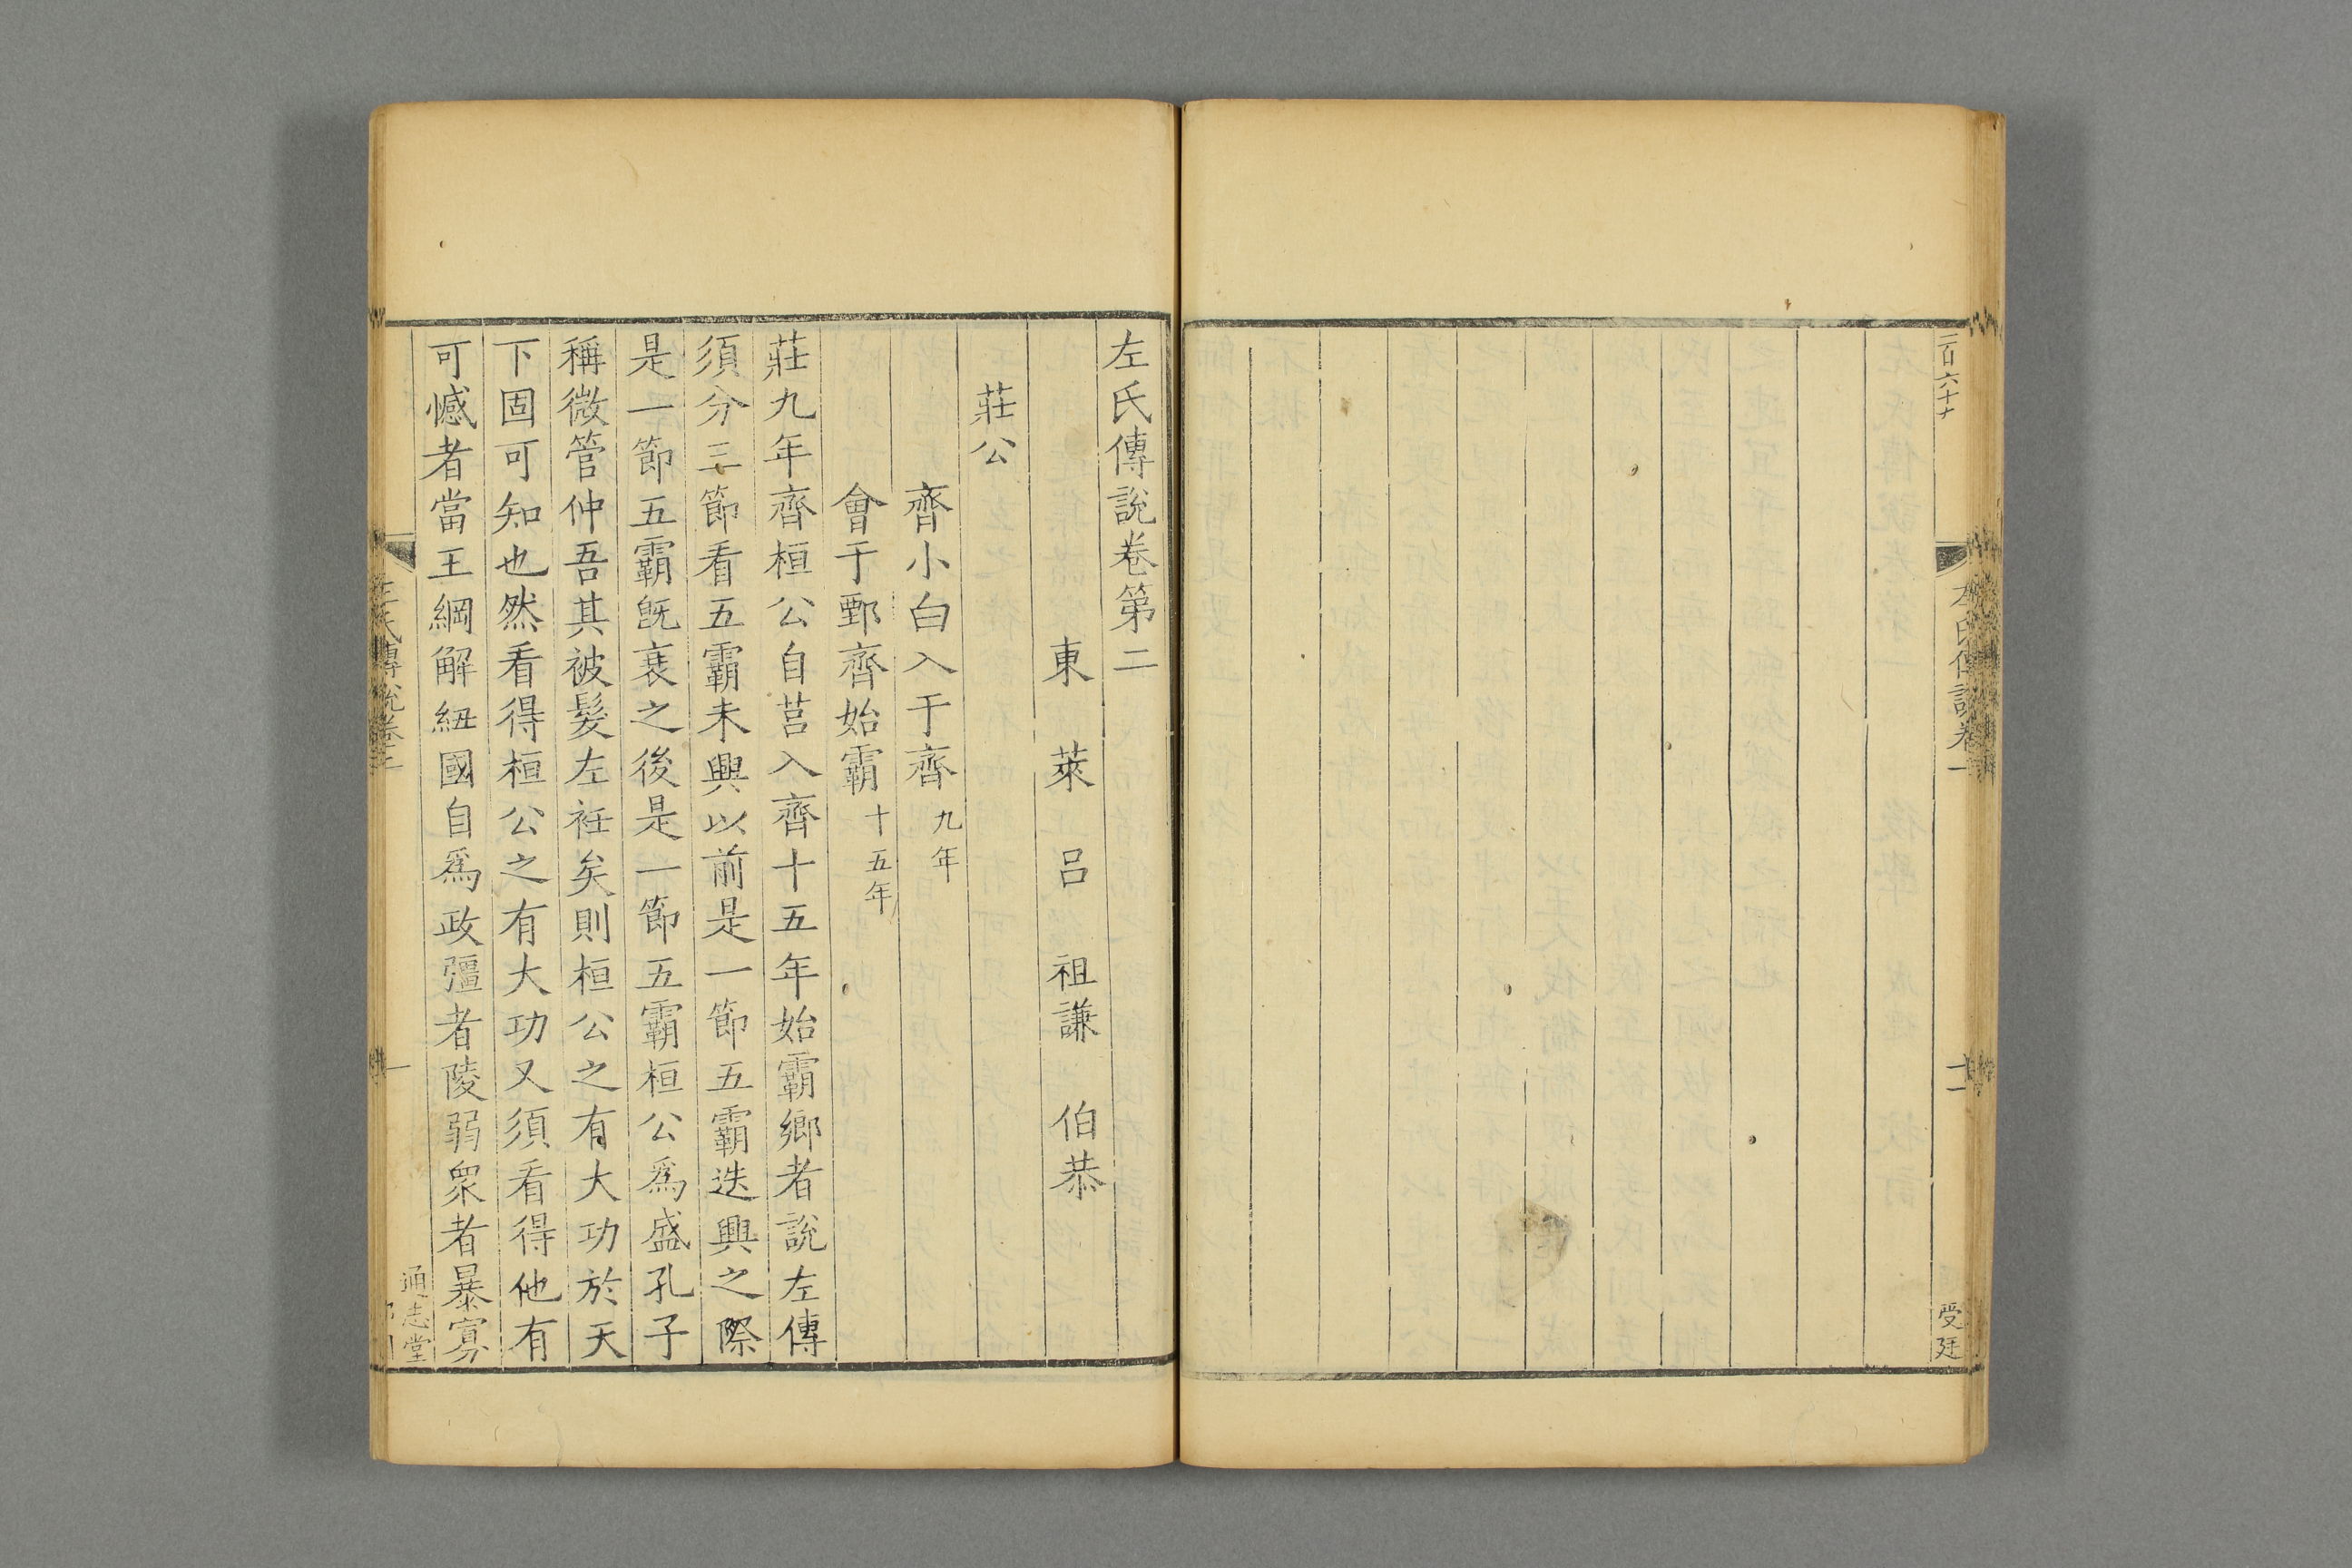 左氏傳說卷一
十一
受廷
左氏傳說卷第二
東萊呂祖謙伯恭
莊公
齊小白入于齊九年
會于鄄齊始霸十五年
莊九年齊桓公自莒入齊十五年始霸鄉者說左傳
須分三節看五霸未興以前是一節五霸迭興之際
是一節五霸旣衰之後是一節五霸桓公爲盛孔子
稱微管仲吾其被髮左衽矣則桓公之有大功於天
下固可知也然看得桓公之有大功又須看得他有
可憾者當王綱解紐國自爲政彊者陵弱衆者暴寡
左氏傳說卷二
一
通志堂